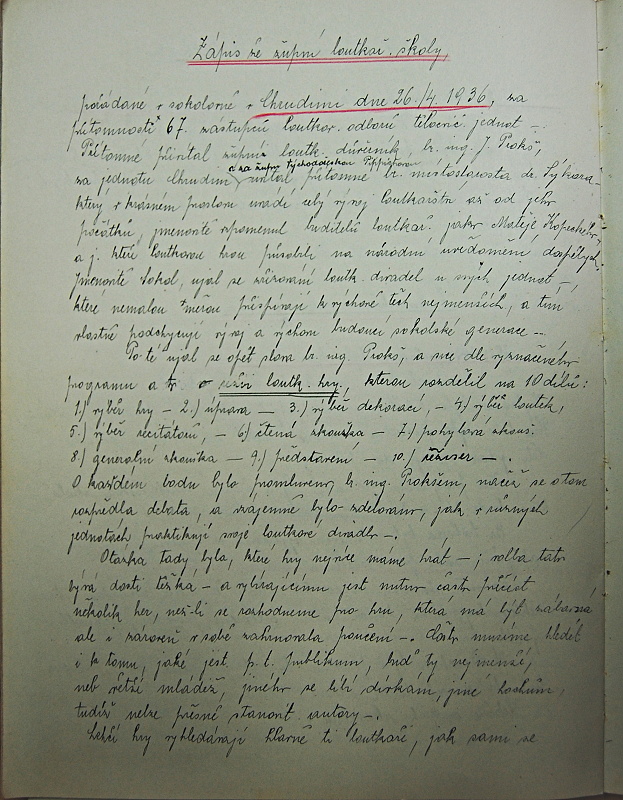 Zápis ze župní loutkář. školy,
pořádané v sokolovně v Chrudimi dne 26./4. 1936, za
přítomnosti 67. zástupců loutkov. odborů tělocvič. jednot —.
Přítomné přivítal župní loutk. důvěrník br. ing. J. Prokš,
a za župu Východočeskou Pippichovu
za jednotu Chrudim uvítal přítomné br. místostarosta dr. Sýkora,
který v krásném proslovu uvedl celý vývoj loutkářství až od jeho
počátků, jmenovitě vzpomenul buditelů loutkář. jako Matěje Kopeckého
a j. kteří loutkovou hrou působili na národní uvědomění dospělých.
Jmenovitě Sokol, ujal se zřizování loutk. divadel u svých jednot —,
které nemalou měrou přispívají k výchově těch nejmenších, a tím
vlastně podchycují vývoj a výchovu budoucí sokolské generace —.
Po té ujal se opět slova br. ing. Prokš, a sice dle vyznačeného
programu a to o režii loutk. hry, kterou rozdělil na 10 dílů:
1.) výběr hry — 2.) úprava — 3.) výběr dekorací, — 4.) výběr loutek,
5.) výběr recitátorů, — 6.) čtená zkouška — 7.) pohybová zkouš.
8.) generální zkouška — 9.) představení — 10.) režisér —.
O každém bodu bylo promluveno, br. ing. Prokšem, načež se o tom
rozpředla debata, a vzájemně bylo sdělováno, jak v různých
jednotách praktikují svoje loutkové divadlo —.
Otázka tady byla, které hry nejvíce máme hrát — ; volba tato
bývá dosti těžká — a vybírajícímu jest nutno často přečíst
několik her, než-li se rozhodneme pro hru, která má být zábavná
ale i zároveň v sobě zahrnovala poučení —. Často musíme hledět
i k tomu, jaké jest p. t. publikum, buď ty nejmenší,
neb větší mládež, jiného se líbí dívkám, jiné hochům,
tudíž nelze přesně stanovit autory —.
Lehčí hry vyhledávají hlavně ti loutkáři, jak sami se